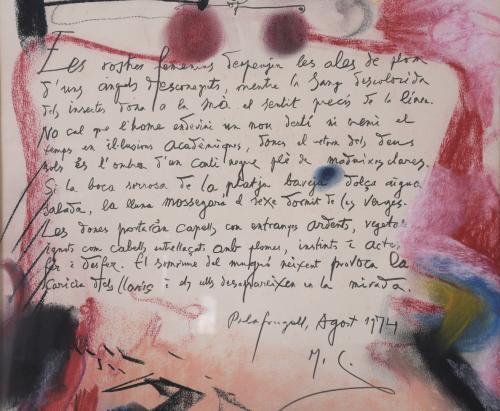 Les rostres femenins despengen les ales de plom
d'uns àngels desconeguts, mentre la sang descolorida
dels insectes dona a la mà el sentit precís de la línea.
No cal que l'home endevini un nou destí ni avenci el
temps en il·lusions acadèmiques, doncs el retorn dels deus
sols és l'ombra d'un conill negre ple de maduixes clares.
Si la boca sorrosa de la platja baveja dolça aigua
salada, la lluna mossegarà el sexe dormit de les verges.
Les dones portaràn capells con entranyes ardents, vegetals
ignots com cabells entrellaçats amb plomes, instints i actes,
fer i desfer. El somrime del mugró neixent provoca la
caricia dels llavis i els ulls desapareixen en la mirada.
Palafrugell, Agost 1974
M. C.